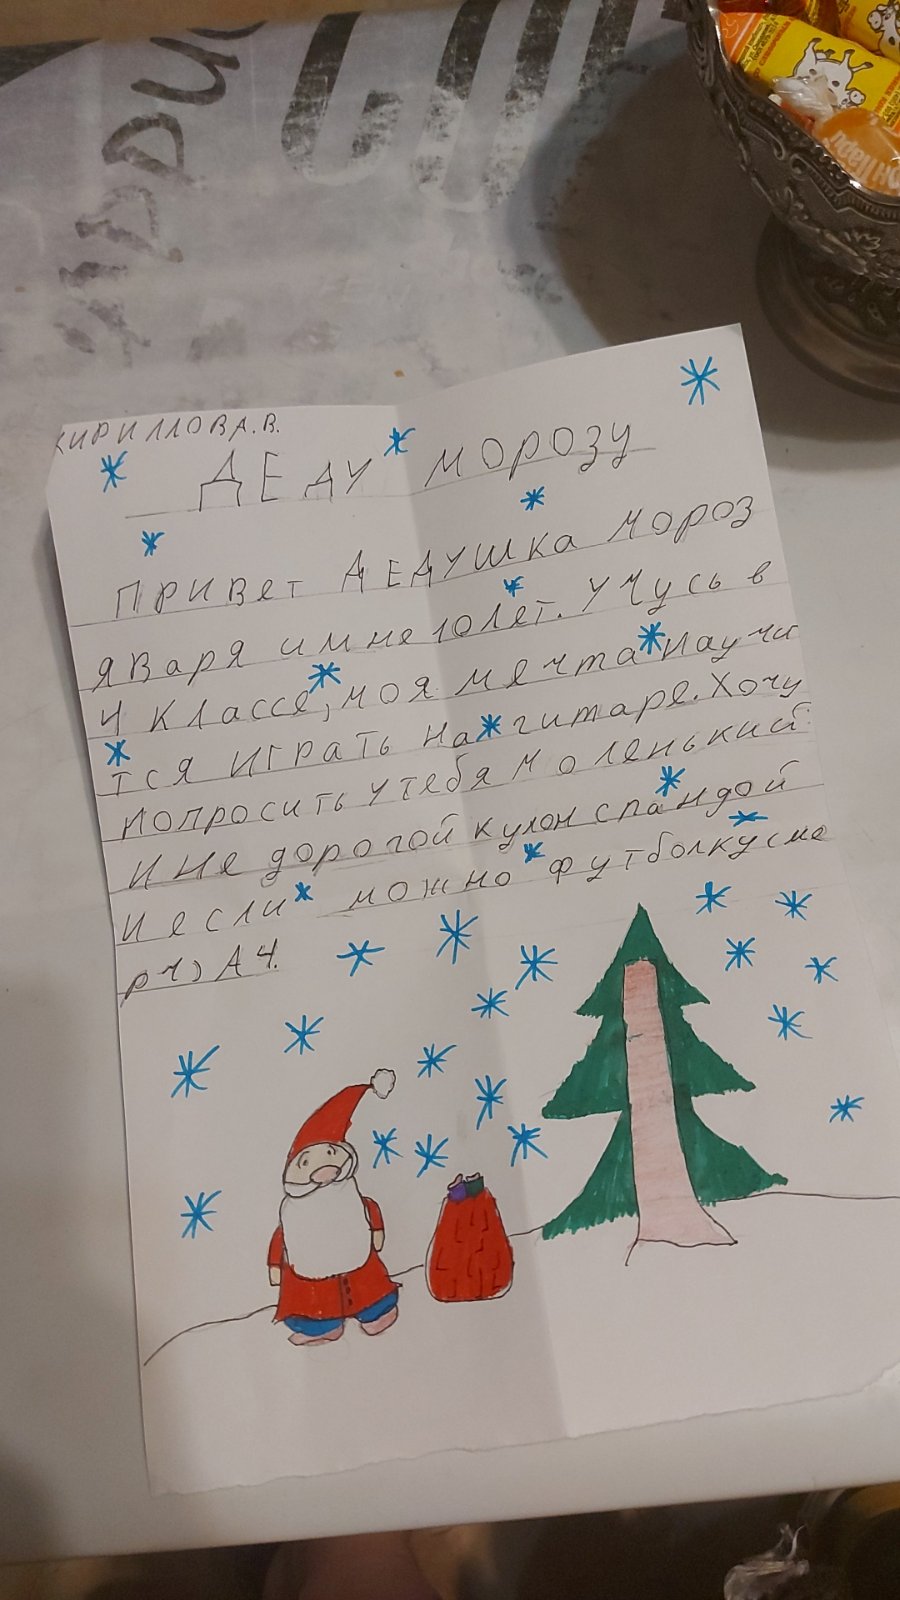 КИРИЛЛОВА.В.
ДЕДУ МОРОЗУ
ПРИВЕТ ДЕДУШКА МОРОЗ
Я ВАРЯ и мне 10 лет. Учусь в
4 классе, моя мечта научи
тся играть на гитаре. Хочу
попросить у тебя моленький
и не дорогой кулон спандой
и если можно футболку сме
рч) А4.